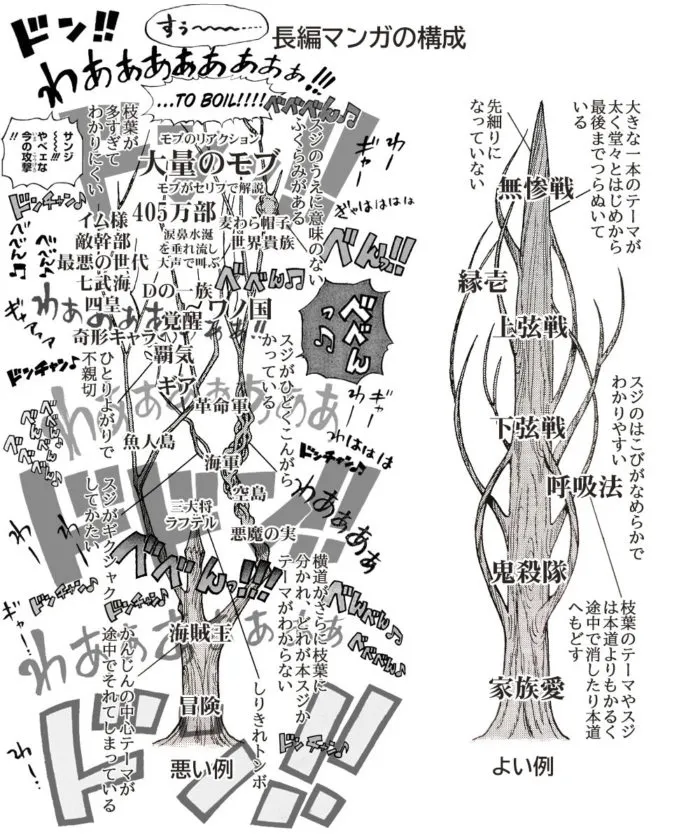 長編マンガの構成
ドン!!
すぅ〜〜〜…
わあぁあぁあぁあぁあぁ!!!
…TO BOIL!!!!
べべべん♪
サンジ
〜〜〜!!!
やべェな
今の攻撃
枝葉が
多すぎて
わかりにくい
モブのリアクション
大量のモブ
モブがセリフで解説
スジのうえに意味のない
ふくらみがある
わー
ぎゃはははは
ドンチャン♪
イム様
405万部
麦わら帽子
敵幹部
涙鼻水涎
を垂れ流し
大声で叫ぶ
世界貴族
最悪の世代
七武海
四皇
Dの一族
ワノ国
奇形キャラ
覚醒
覇気
ギア
べん!!
べべん♪
べべんっ♪
ギャアアア
ドンチャン♪
ひとりよがりで
不親切
スジがひどくこんがら
かっている
革命軍
魚人島
海軍
空島
三大将
ラフテル
悪魔の実
わははは
ドンチャン♪
わあぁあぁあぁ
ドドン!!
スジがギクシャク
してかたい
べべんっ!!!
横道がさらに枝葉に
分かれ、どれが本スジか
テーマがわからない
べんべん♪
べべべん♪
海賊王
冒険
かんじんの中心テーマが
途中でそれてしまっている
しりきれトンボ
ドンチャン♪
ドン!!
悪い例
大きな一本のテーマが
太く堂々とはじめから
最後までつらぬいて
いる
先細りに
なっていない
無惨戦
縁壱
上弦戦
スジのはこびがなめらかで
わかりやすい
下弦戦
呼吸法
鬼殺隊
枝葉のテーマやスジ
は本道よりもかるく
途中で消したり本道
へもどす
家族愛
よい例